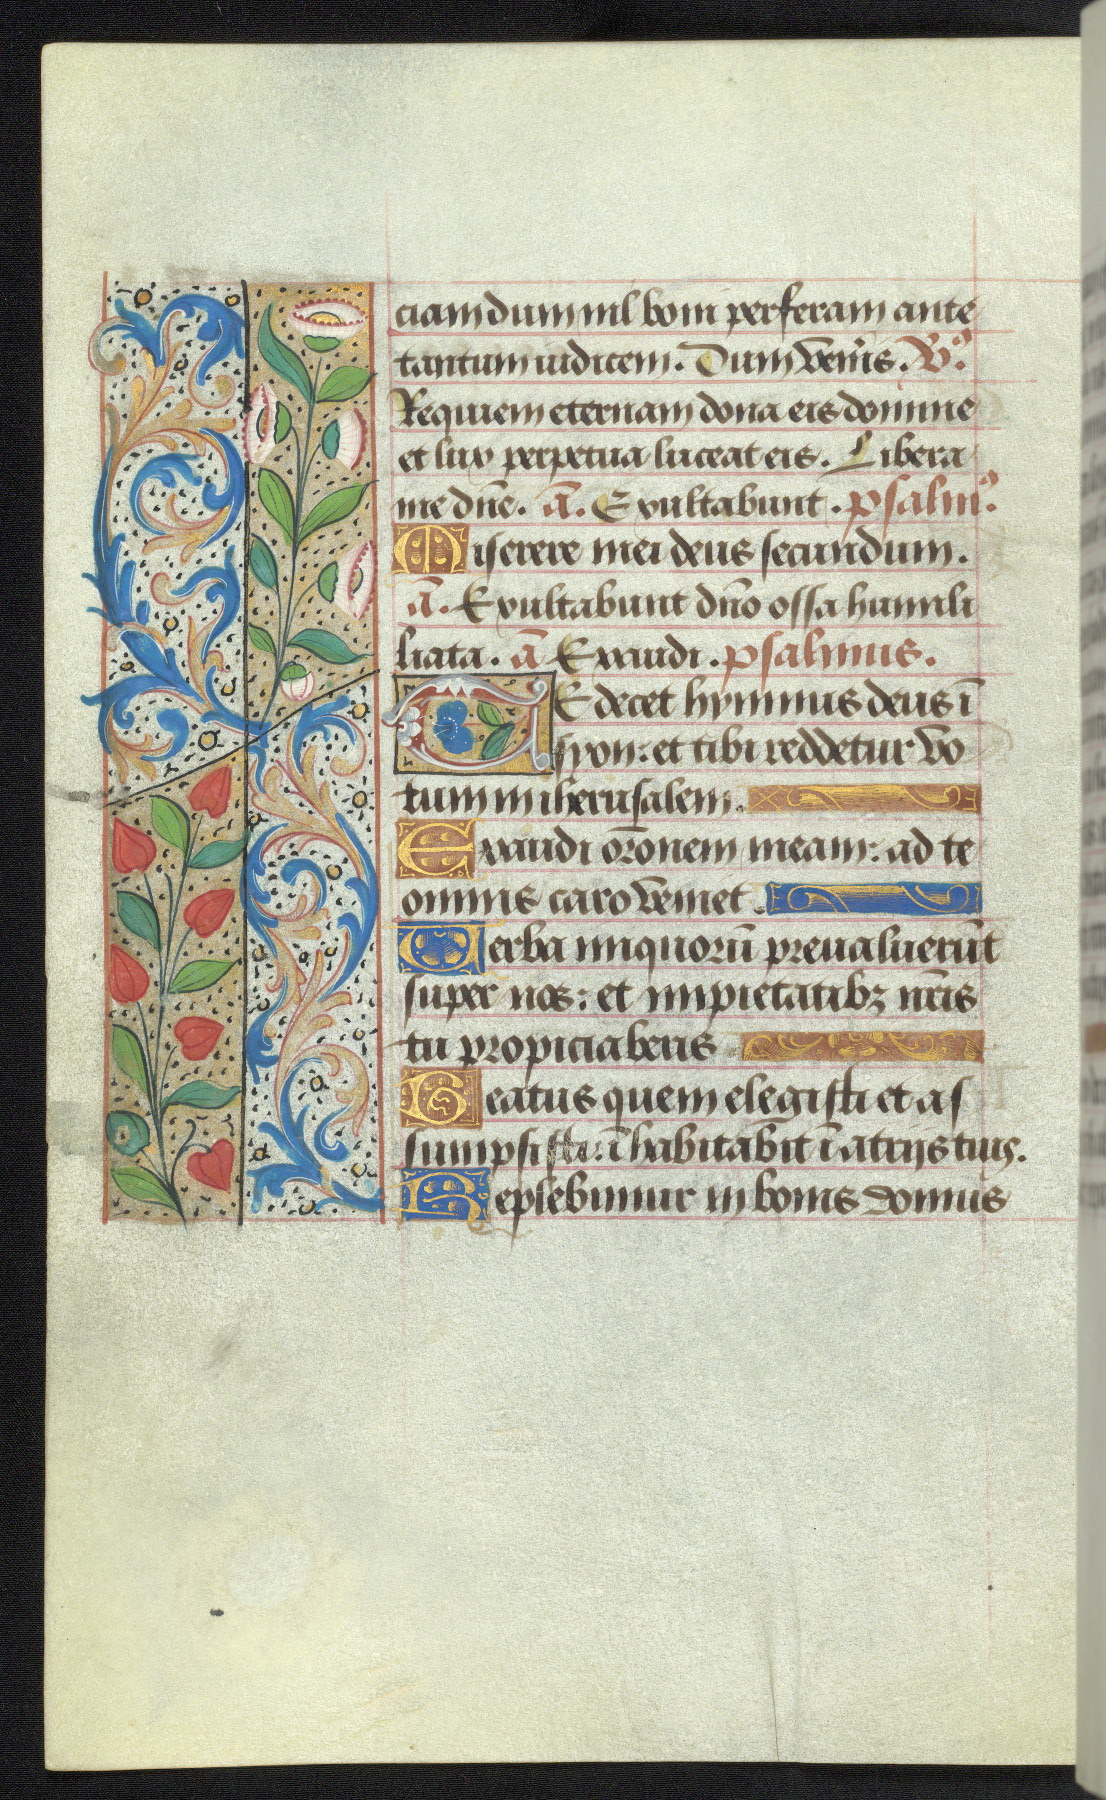 ciam dum nil boni perferam ante
tantum iudicem. Dum veneris. V̊.
Requiem eternam dona eis domine
et lux perpetua luceat eis. Libera
me dn̄e. ā. Exultabunt. psalmꝰ.
Miserere mei deus secundum.
ā. Exultabunt dn̄o ossa humili
liata. ā Exaudi. psalmus.
TE decet hymnus deus ī
syon: et tibi reddetur vo
tum in iherusalem.
Exaudi or̄onem meam: ad te
omnis caro veniet.
Verba iniquorū preualuerūt
super nos: et impietatibꝫ nr̄is
tu propiciaberis
Beatus quem elegisti et as
sumpsisti: īhabitabit ī atriis tuis.
Replebimur in bonis domus